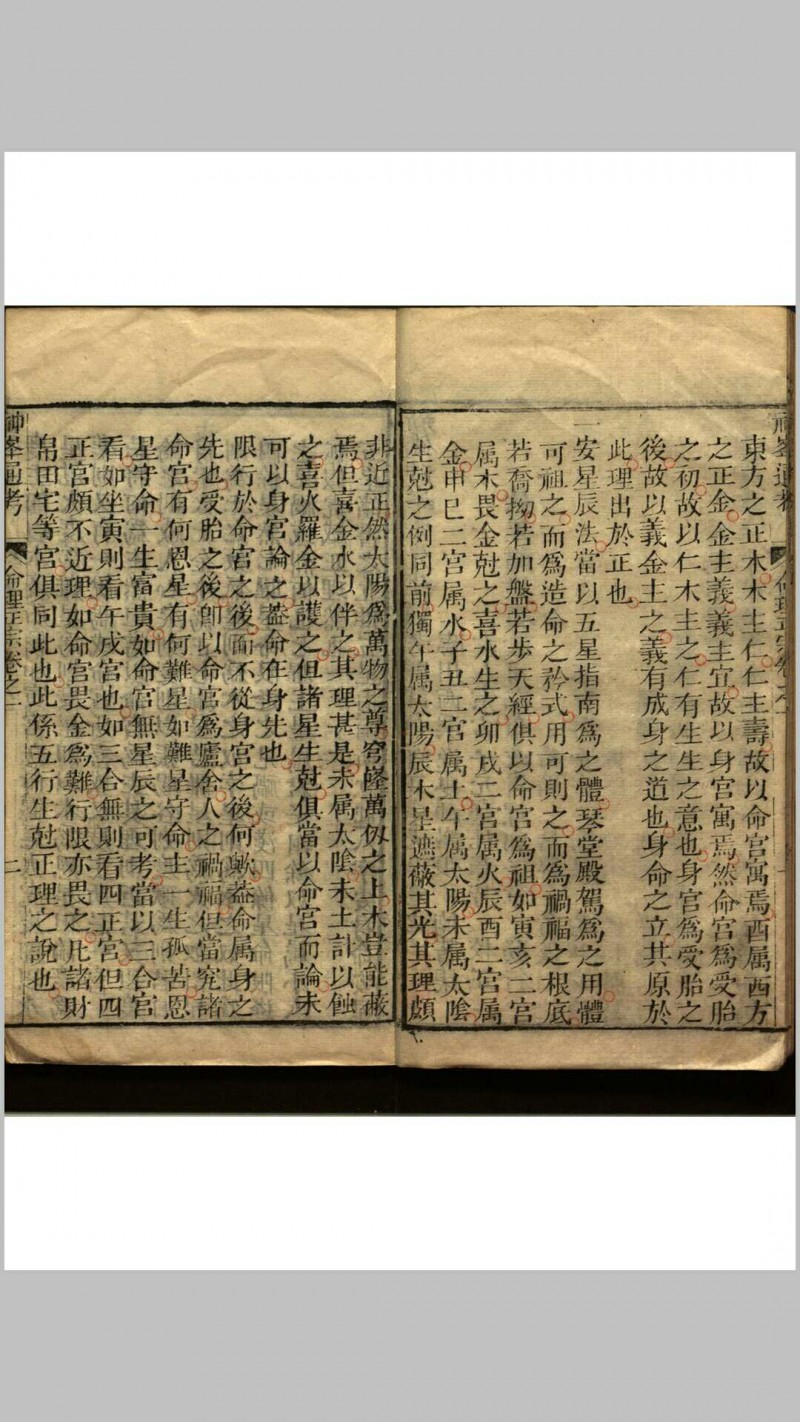 東方之正木木主仁仁主壽故以命宮寓焉酉属西方
之正金金主義義主宜故以身宮寓焉然命宮爲受胎
之初故以仁木主之仁有生生之意也身宮爲受胎之
後故以義金主之義有成身之道也身命之立其原於
此理出於正也
安星辰法當以五星指南爲之體琹堂殿駕爲之用體
可祖之而爲造命之矜式用可則之而爲禍福之根底
若喬拗若加盤若步天經俱以命宮爲祖如寅亥二宮
属木畏金尅之喜水生之卯戌二宮属火辰酉二宮属
金申巳二宮属水子丑二宮属土午属太陽未属太隂
生尅之例同前獨午属太陽辰木星遮蔽其光其理頗
非近正然太陽爲萬物之尊穹窿萬仞之上木豈能蔽
焉但喜金水以伴之其理甚是未属太隂未土計以蝕
之喜火羅金以護之但諸星生尅俱當以命宮而論未
可以身宮論之葢命在身先也
限行於命宮之後而不從身宮之後何歟葢命属身之
先也受胎之後卽以命宮爲廬舍人之禍福但當究諸
命宮有何恩星有何難星如難星守命主一生孤苦恩
星守命一生富貴如命宮無星辰之可考當以三合宮
看如坐寅則看午戌宮也如三合無則看四正宮但四
正宮頗不近理如命宮畏金爲難行限亦畏之凡諸財
帛田宅等宮俱同此也此係五行生尅正理之說也
神峯通考
命理正宗卷之一
二